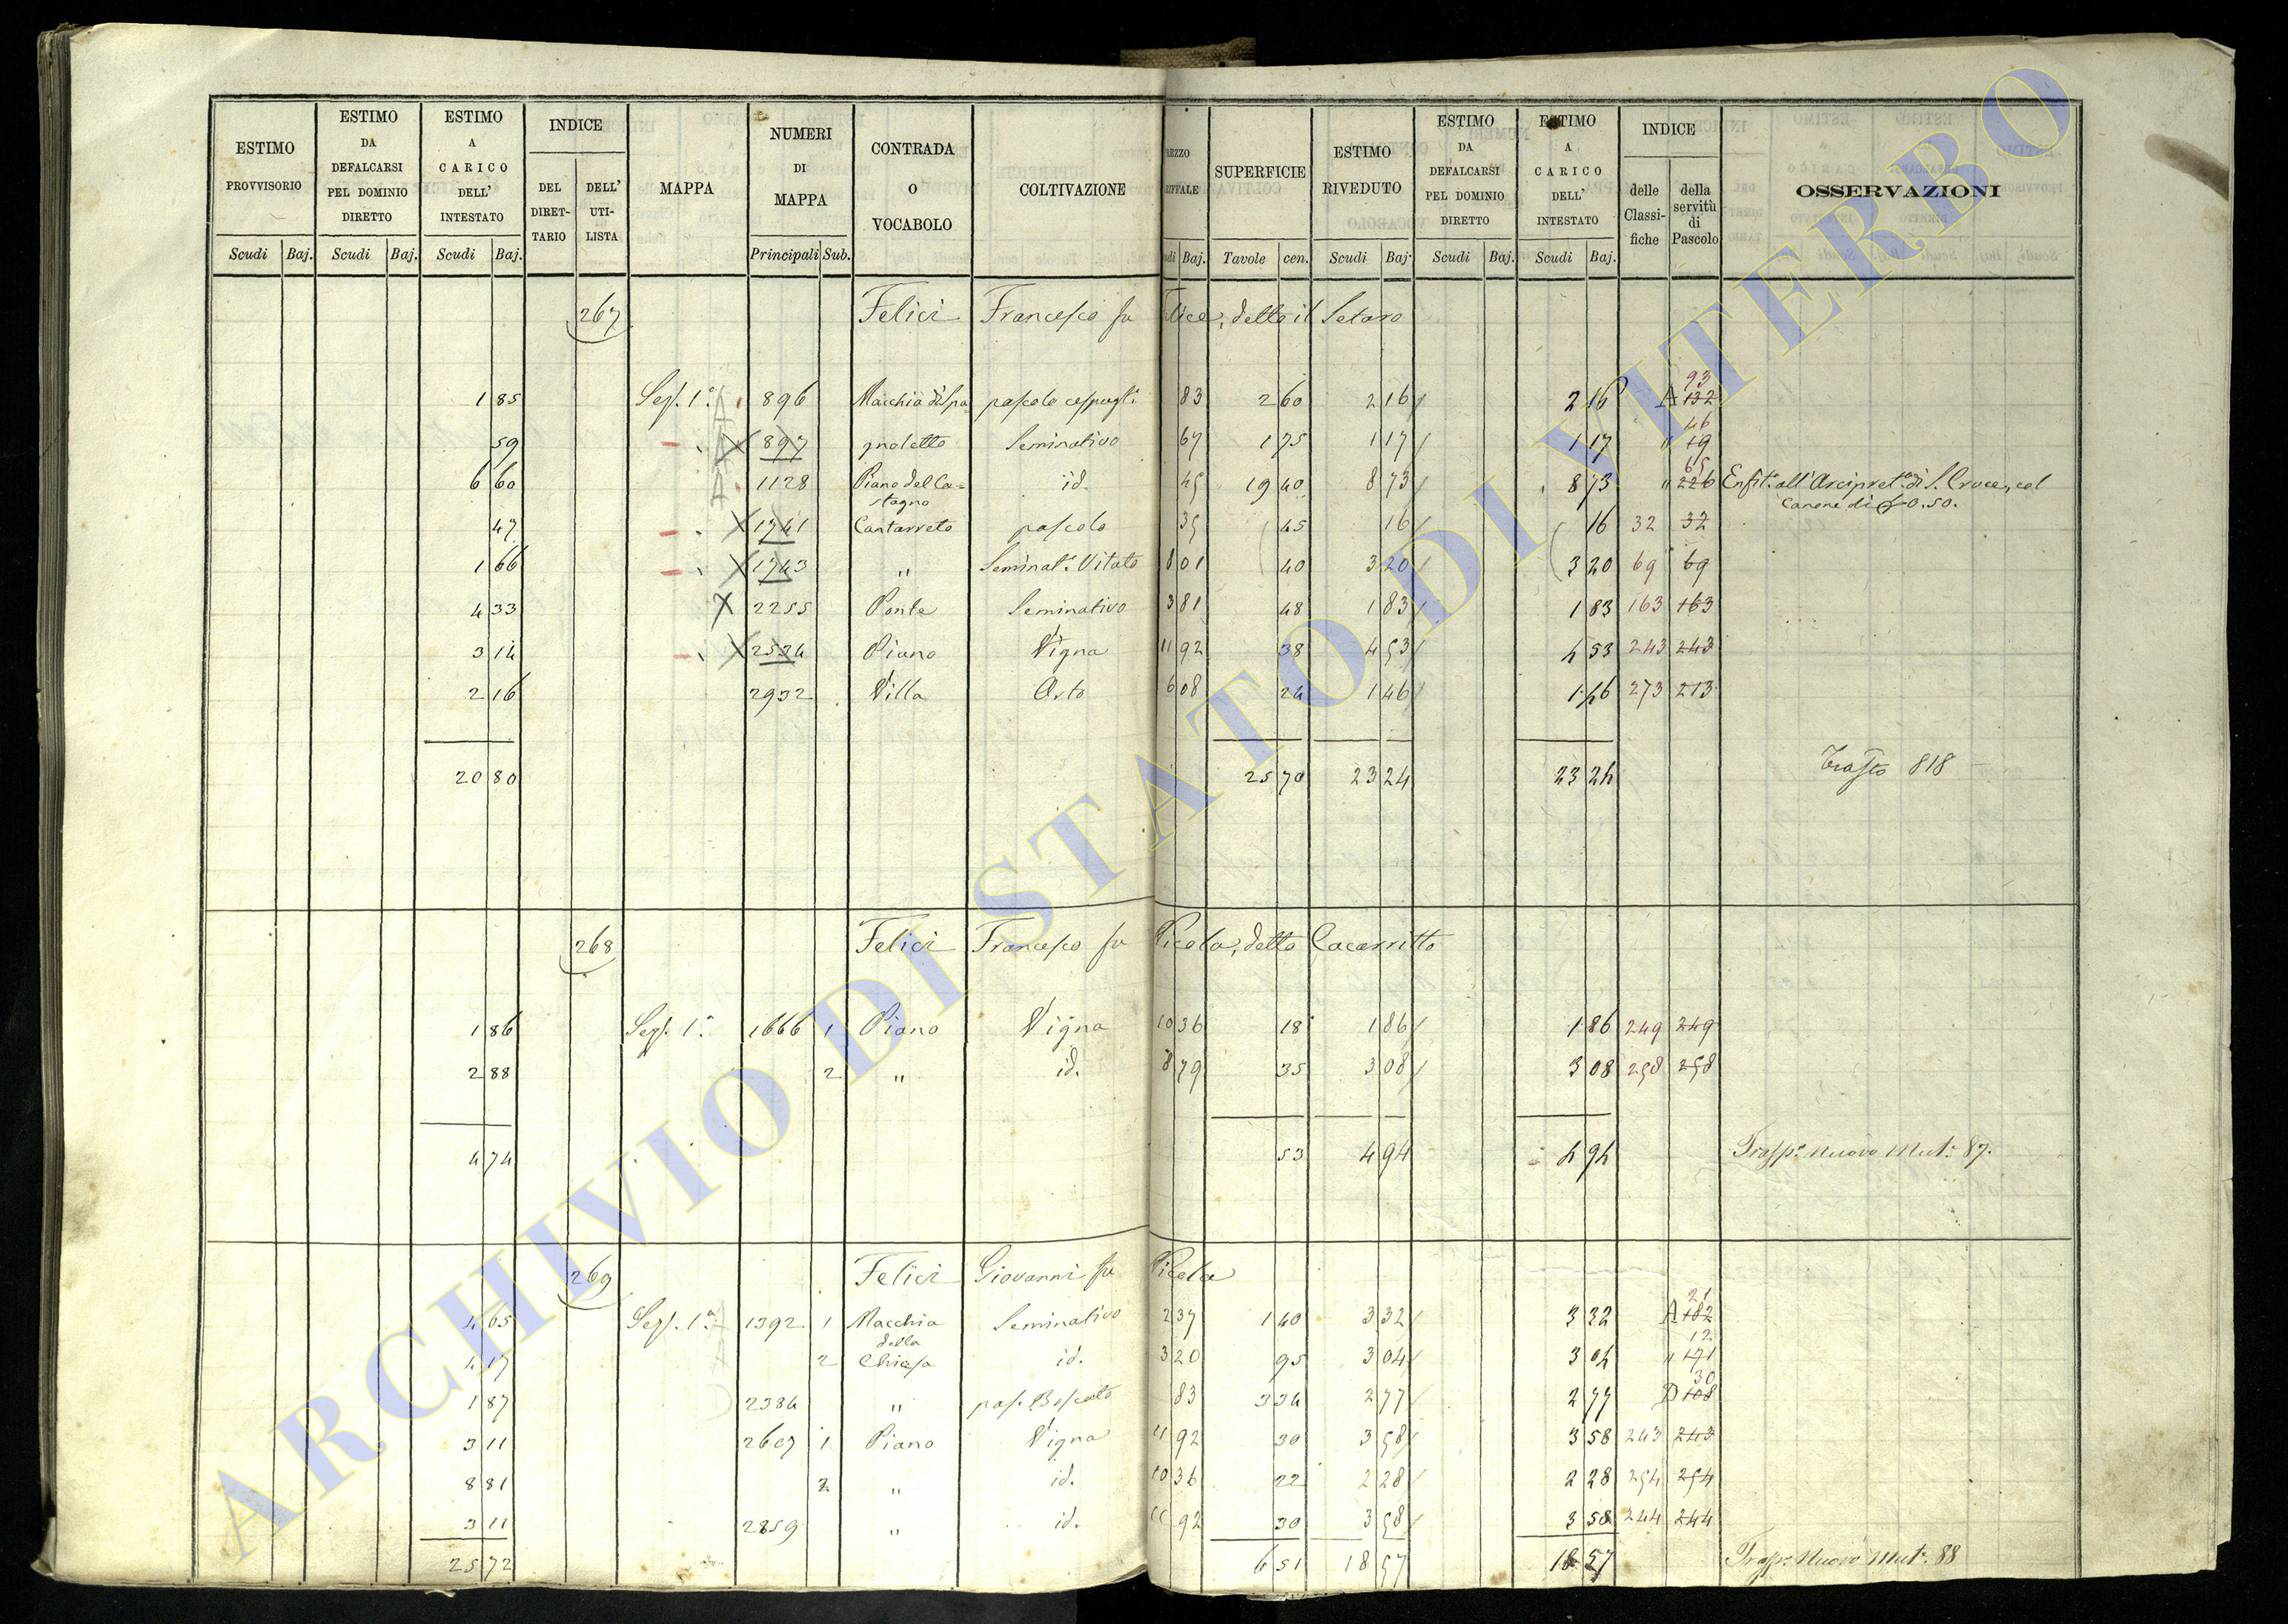 ESTIMO PROVVISORIO | ESTIMO DA DEFALCARSI PEL DOMINIO DIRETTO | ESTIMO A CARICO DELL' INTESTATO | INDICE | MAPPA | NUMERI DI MAPPA | CONTRADA O VOCABOLO | COLTIVAZIONE | SUPERFICIE | ESTIMO RIVEDUTO | ESTIMO DA DEFALCARSI PEL DOMINIO DIRETTO | ESTIMO A CARICO DELL' INTESTATO | INDICE | OSSERVAZIONI
DEL DIRETTARIO | DELL' UTILISTA | delle Classifiche | della servitù di Pascolo
Scudi | Baj. | Scudi | Baj. | Scudi | Baj. | Principali | Sub. | Baj. | Tavole | cen. | Scudi | Baj. | Scudi | Baj. | Scudi | Baj.
267 Felici Francesco fu Felice, detto il Setaro
1 85 | Sez. 1ª | A | 896 | Macchia di Spa | pascolo cespugl: | 83 | 2 60 | 2 16 | 2 16 | A 132 93
59 | 897 | gnoletto | Seminativo | 67 | 1 75 | 1 17 | 1 17 | " 19 46
6 60 | A | 1128 | Piano del Ca= | id. | 45 | 19 40 | 8 73 | 8 73 | " 226 65 | Enfit. all'Arcipret. di S. Croce, col
stagno | Canone di 0.50.
47 | 1741 | Cantarreto | pascolo | 35 | 45 | 16 | 16 | 32 | 32
1 66 | 1743 | " | Seminat. Vitato | 8 01 | 40 | 3 20 | 3 20 | 69 | 69
4 33 | X | 2255 | Ponte | Seminativo | 3 81 | 48 | 1 83 | 1 83 | 163 | 163
3 14 | 2534 | Piano | Vigna | 11 92 | 38 | 4 53 | 4 53 | 243 | 243
2 16 | 2932 | Villa | Orto | 6 08 | 24 | 1 46 | 1 46 | 273 | 213
20 80 | 25 70 | 23 24 | 23 24 | Trasto 818
268 Felici Francesco fu Nicola, detto Cacarritto
1 86 | Sez. 1ª | 1666 | 1 | Piano | Vigna | 10 36 | 18 | 1 86 | 1 86 | 249 | 249
2 88 | 2 | " | id. | 8 79 | 35 | 3 08 | 3 08 | 258 | 258
4 74 | 53 | 4 94 | 4 94 | Trasp. Nuovo Mut. 87.
269 Felici Giovanni fu Nicola
4 65 | Sez. 1ª | 1392 | 1 | Macchia | Seminativo | 2 37 | 1 40 | 3 32 | 3 32 | A 182 21
della
4 17 | 2 | Chiesa | id. | 3 20 | 95 | 3 04 | 3 04 | " 171 12
1 87 | 2384 | " | pas. Boscato | 83 | 3 34 | 2 77 | 2 77 | D 108 30
3 11 | 2607 | 1 | Piano | Vigna | 11 92 | 30 | 3 58 | 3 58 | 243 | 243
8 81 | 2 | " | id. | 10 36 | 22 | 2 28 | 2 28 | 254 | 254
3 11 | 2859 | " | id. | 11 92 | 30 | 3 58 | 3 58 | 244 | 244
25 72 | 6 51 | 18 57 | 18 57 | Trasp. Nuovo Mut. 88
ARCHIVIO DI STATO DI VITERBO